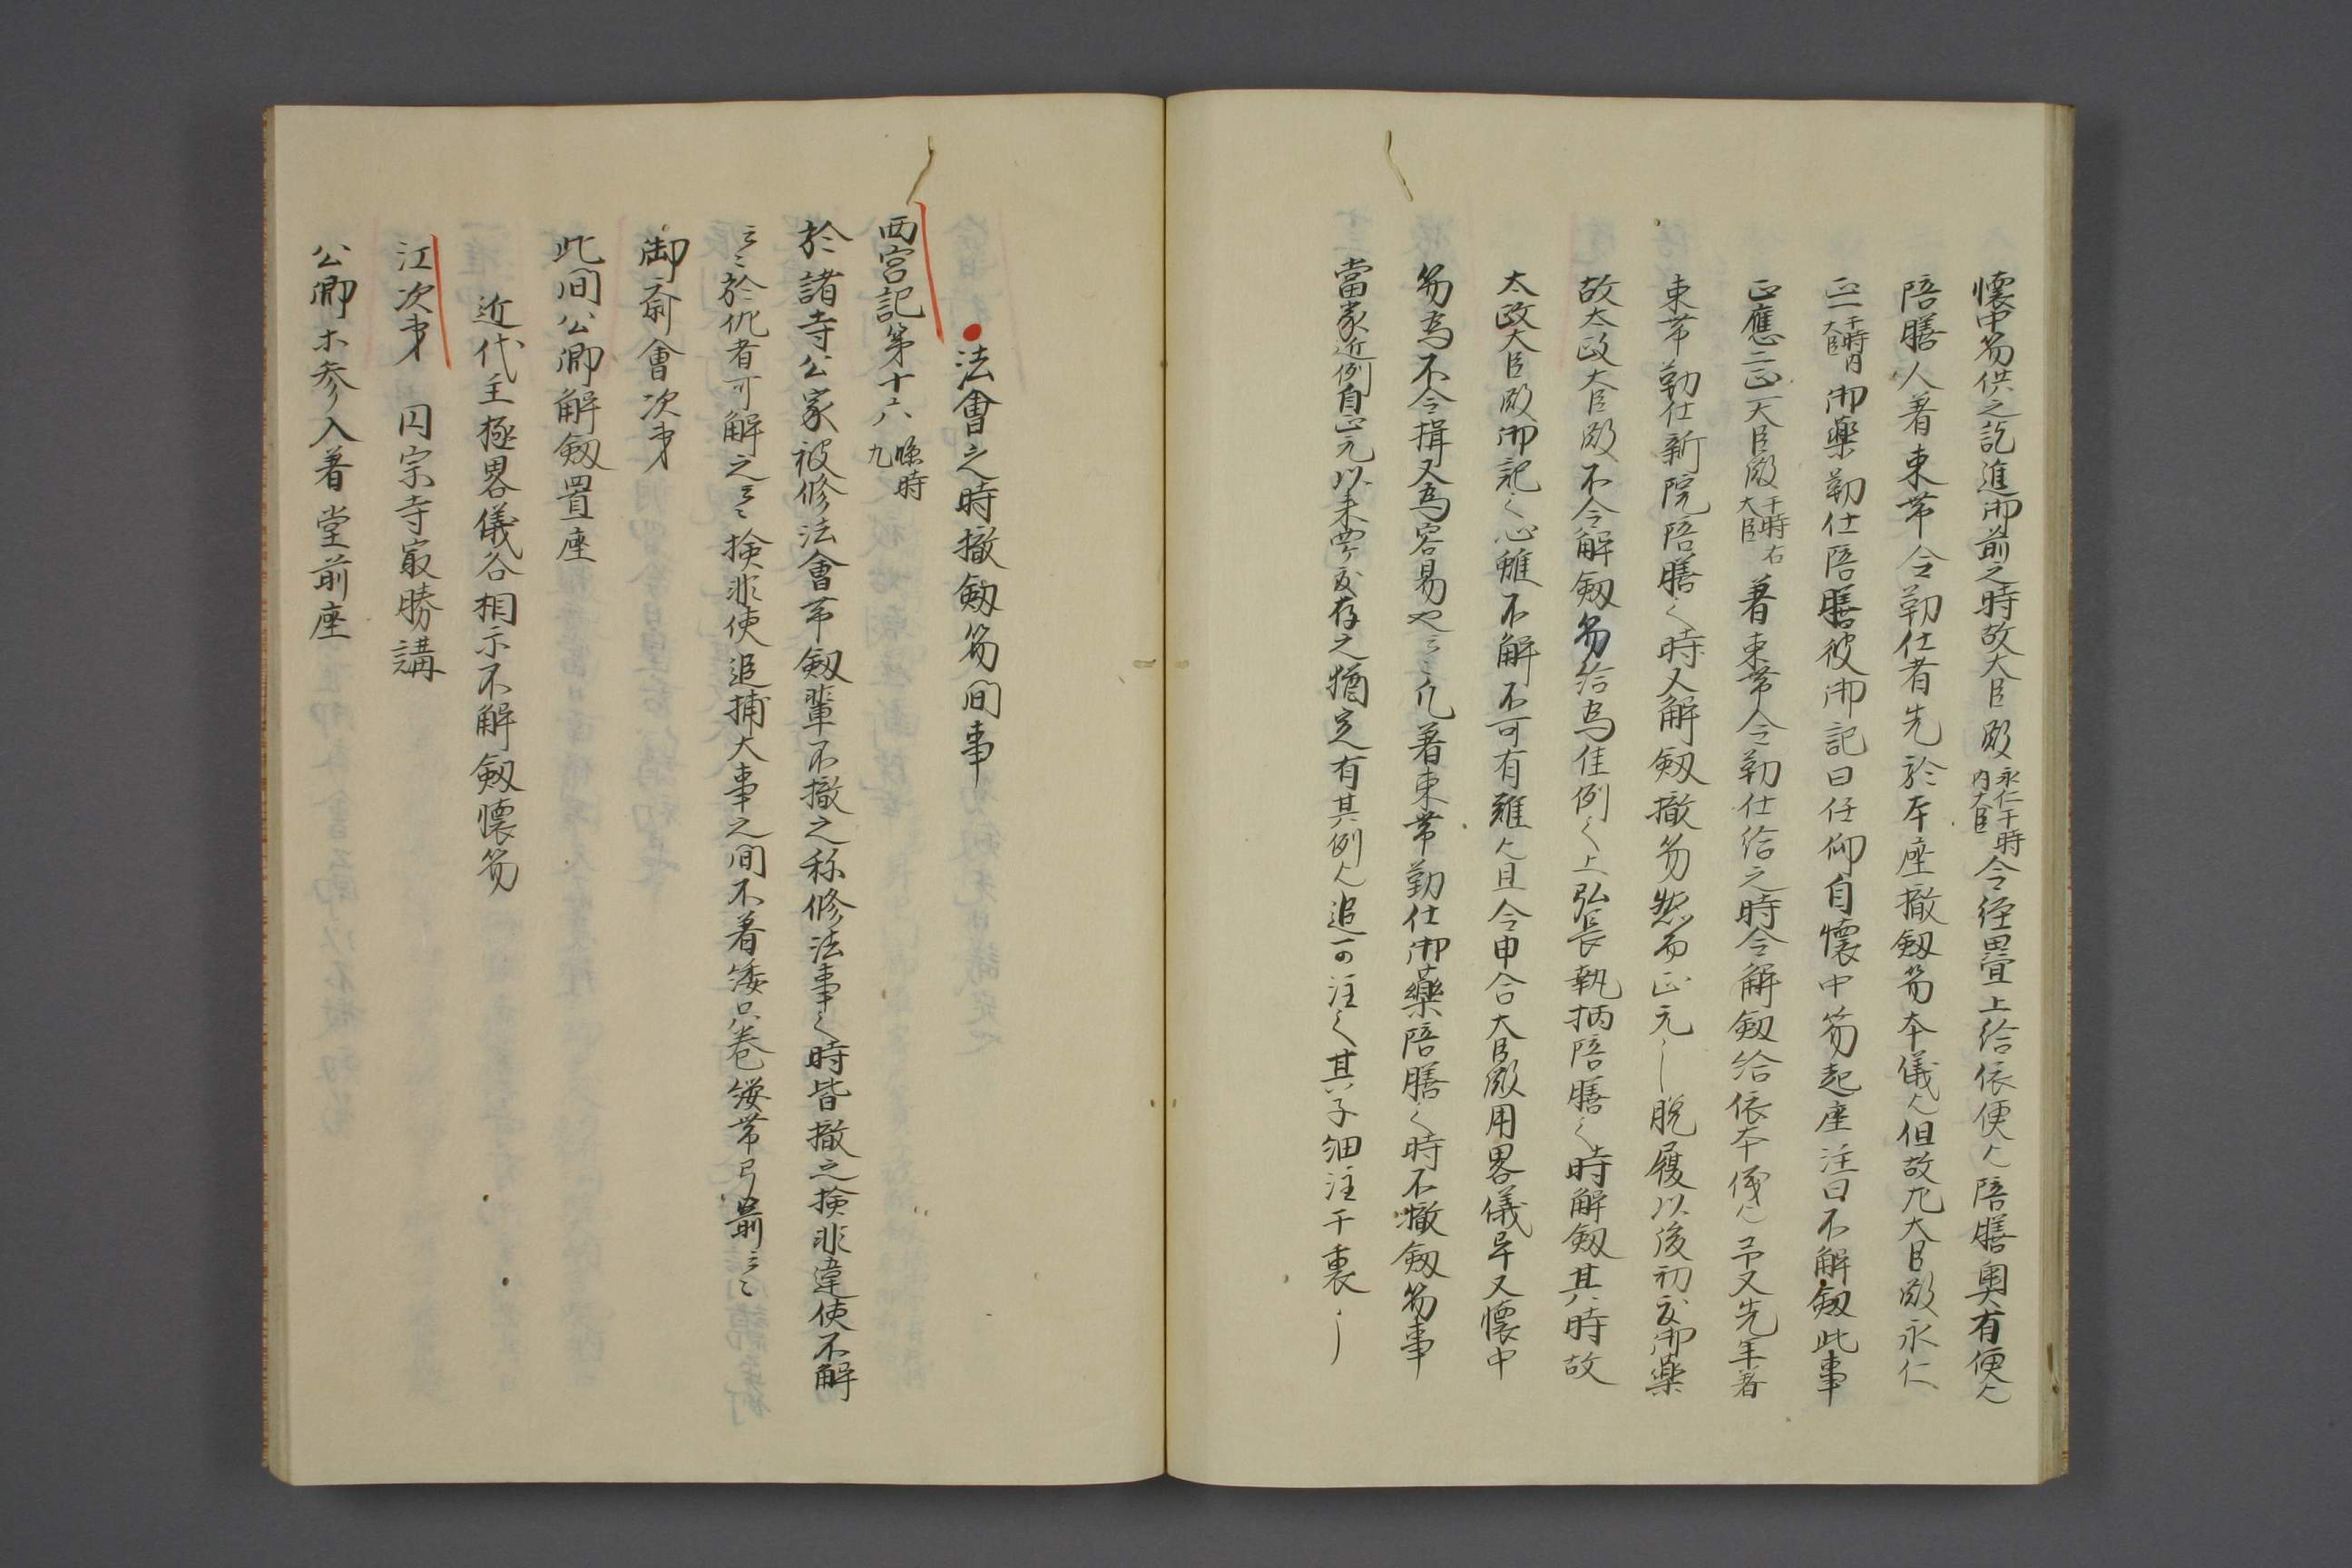 懐中笏供之訖進御前之時故大臣殿永仁于時内大臣令経畳上給依便也陪膳奥有便也
陪膳人着束帯令勤仕者先於本座撤劔笏本儀也但故九大臣殿永仁
正一于時内大臣御薬勤仕陪膳彼御記曰任仰自懐中笏起座注曰不解劔此事
正應二正一大臣殿于時右大臣着束帯令勤仕給之時令解劔給依本儀也予又先年着
束帯勤仕新院陪膳之時又解劔撤笏怱而正元〻脱履以後初度御薬
故太政大臣殿不令解劔笏給為佳例之上弘長執柄陪膳之時解劔其時故
太政大臣殿御記之心雖不解不可有難也且令申合大臣殿用畧儀早又懐中
笏為不令揖又為容易也云〻凡着束帯勤仕御薬陪膳之時不撤劔笏事
當家近例自正元以来両度存之猶定有其例也追可注之其子細注于裏〻
法會之時撤劔笏間事
西宮記第十六 臨時九
於諸寺公家被修法會帯劔輩不撤之称修法事之時皆撤之撿非違使不解
云〻於仏者可解之云〻撿非使追捕大事之間不着緌只巻纓帯弓箭云〻
御斎會次第
此间公卿解劔置座
近代主極畧儀各相示不解劔懐笏
江次第 円宗寺最勝講
公卿木参入着堂前座